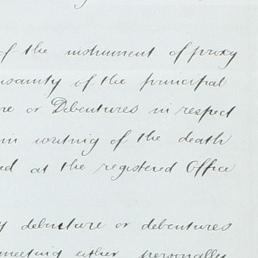 of the instrument of proxy
insanity of the principal
or Debentures in respect
in writing of the death
at the registered Office
debenture or debentures
meeting either personally